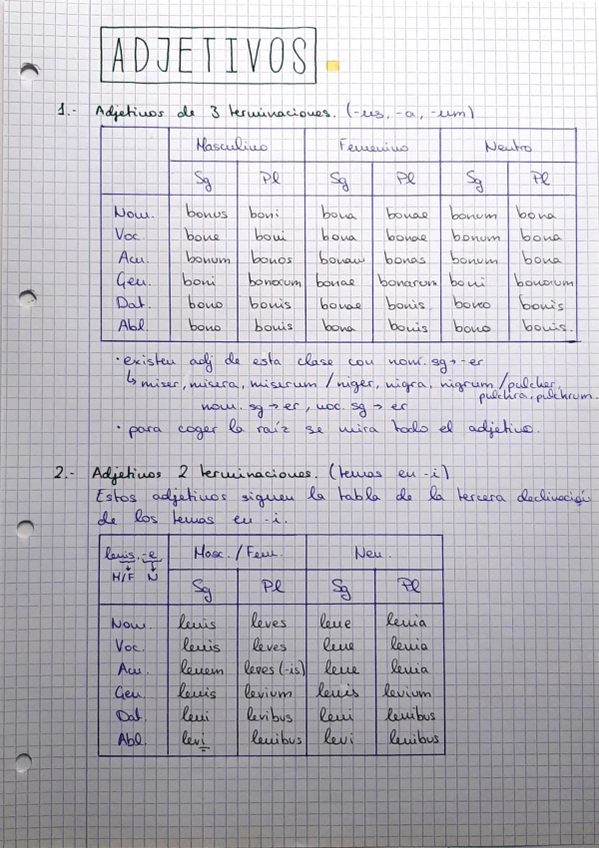 ADJETIVOS
1.- Adjetivos de 3 terminaciones. (-us, -a, -um)
Masculino Femenino Neutro
Sg Pl Sg Pl Sg Pl
Nom. bonus boni bona bonae bonum bona
Voc. bone boni bona bonae bonum bona
Acu. bonum bonos bonam bonas bonum bona
Gen. boni bonorum bonae bonarum boni bonorum
Dat. bono bonis bonae bonis bono bonis
Abl bono bonis bona bonis bono bonis.
· existen adj de esta clase con nom. sg → -er
↳ miser, misera, miserum / niger, nigra, nigrum / pulcher,
pulchra, pulchrum.
nom. sg → er, voc. sg → er
· para coger la raíz se mira todo el adjetivo.
2.- Adjetivos 2 terminaciones. (temas en -i)
Estos adjetivos siguen la tabla de la tercera declinación
de los temas en -i.
levis, -e Masc. / Fem. Neu.
M/F N Sg Pl Sg Pl
Nom. levis leves leve levia
Voc. levis leves leve levia
Acu. levem leves (-is) leve levia
Gen. levis levium levis levium
Dat. levi levibus levi levibus
Abl. levi levibus levi levibus